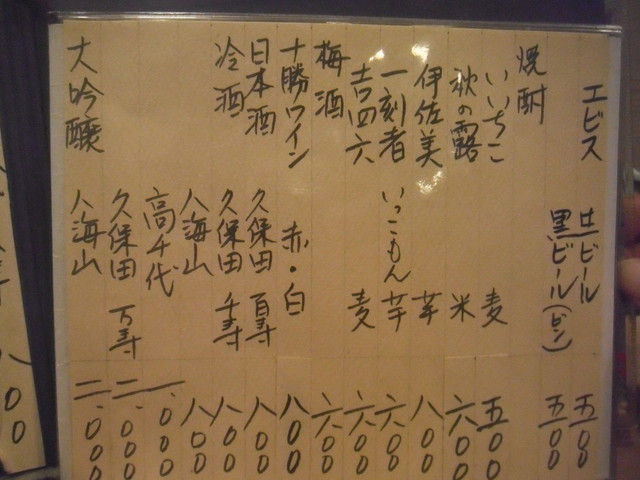 エビス 生ビール 五〇〇
黒ビール(ビン) 五〇〇
焼酎
いいちこ 麦 五〇〇
秋の露 米 六〇〇
伊佐美 芋 八〇〇
一刻者 いっこもん 芋 六〇〇
吉四六 麦 六〇〇
梅酒 六〇〇
十勝ワイン 赤・白 八〇〇
日本酒 久保田 百寿 八〇〇
冷酒 久保田 千寿 八〇〇
八海山 八〇〇
高千代 一、〇〇〇
久保田 万寿 二、〇〇〇
大吟醸 八海山 二、〇〇〇
八〇〇